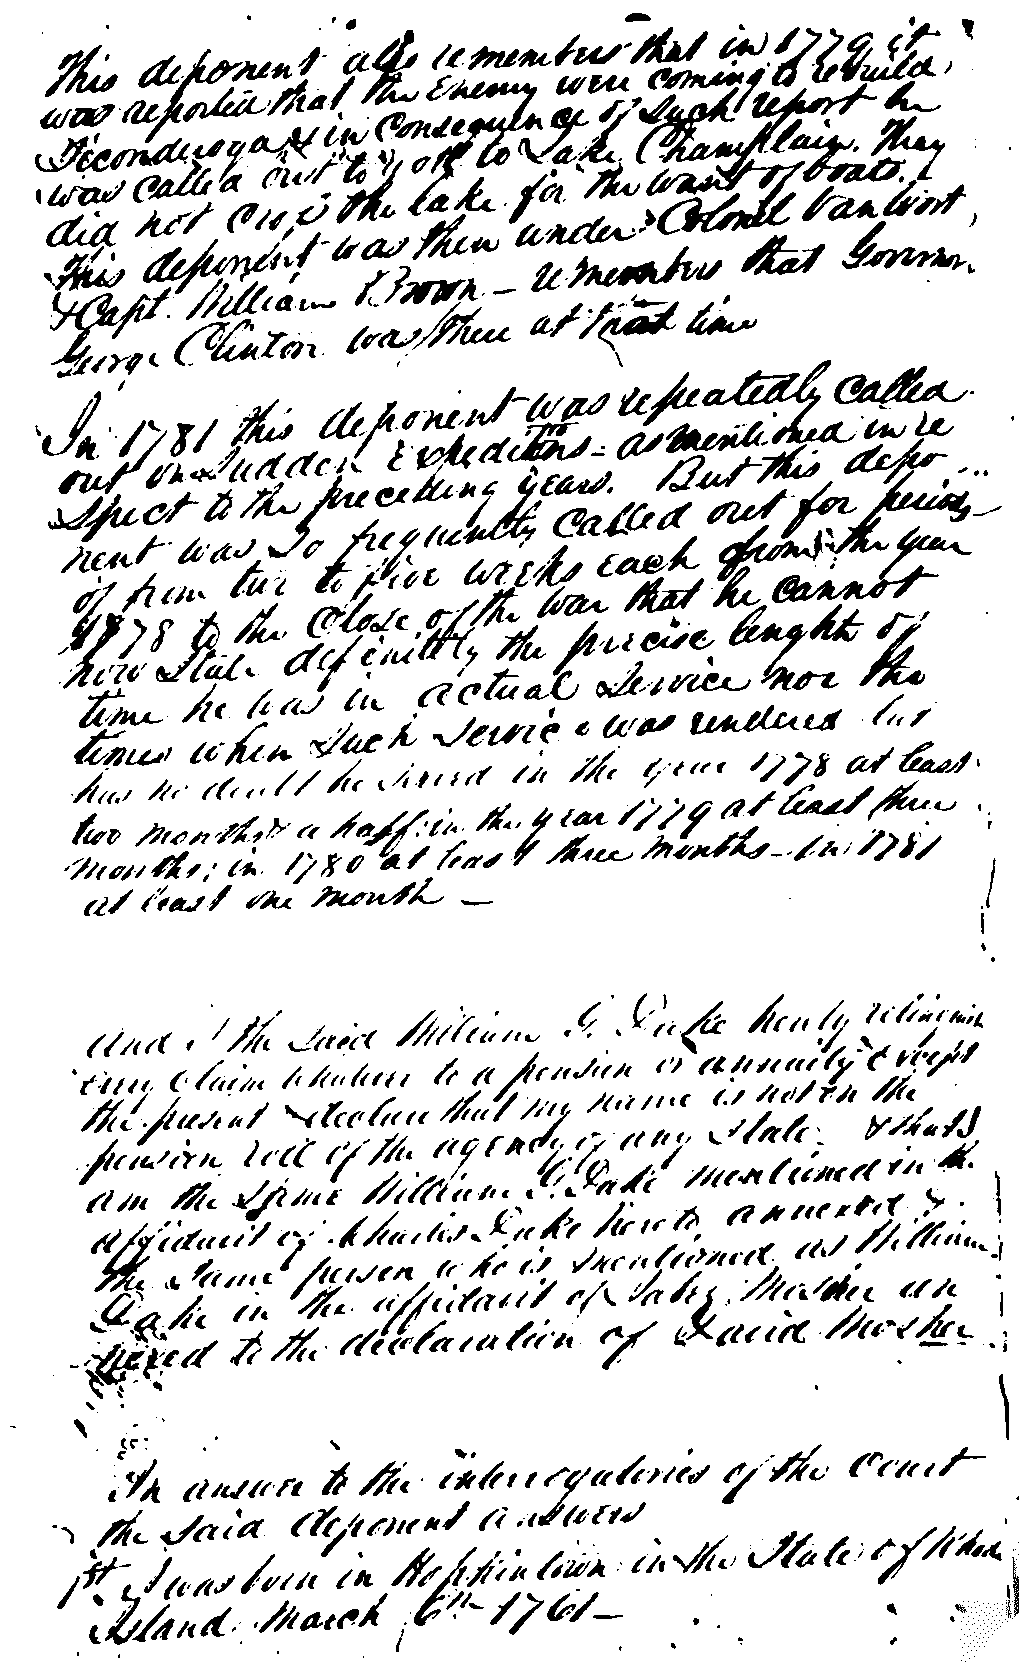 This deponent also remembers that in 1779 it
was reported that the Enemy were coming to rebuild
Ticonderoga & in consequence of such report he
was called out to go to Lake Champlain. They
did not cross the lake for the want of boats.
This deponent was then under Colonel Van Wort,
& Capt. William Brown – remembers that Governor
George Clinton was there at that time
In 1781 this deponent was repeatedly called
out on sudden Expeditions – as mentioned in re
spect to the preceding years. But this depo
nent was so frequently called out for periods
of from two to five weeks each from the year
1778 to the close of the war that he cannot
now state definitely the precise lenght of
time he was in actual service nor the
times when such service was rendered but
has no doubt he served in the year 1778 at least
two months & a half: in the year 1779 at least three
months; in 1780 at least three months – in 1781
at least one month –
and I the said William G. Lake hereby relinquish
every claim whatever to a pension or annuity except
the present & declare that my name is not on the
pension roll of the agency of any State. & that I
am the same William G. Lake mentioned in the
affidavit of Charles Lake hereto annexed &
the same person who is mentioned as William
Lake in the affidavit of Mosher an
nexed to the declaration of David Mosher
In answer to the interrogatories of the court
the said deponent answers
1st I was born in Hopkintown in the State of Rhode
Island March 6th 1761 –